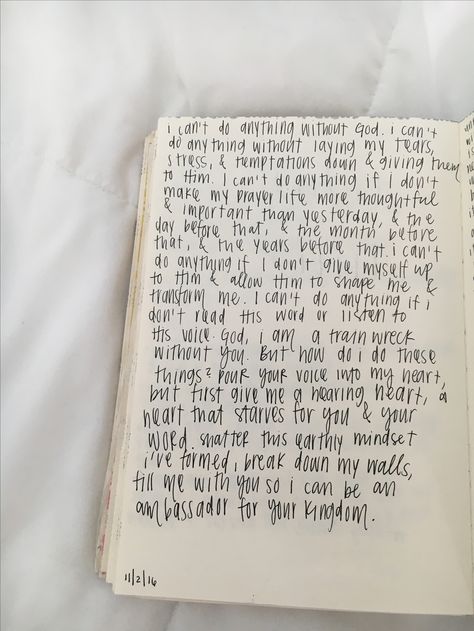 i can't do anything without God. i can't
do anything without laying my tears,
stress, & temptations down & giving them
to Him. I can't do anything if I don't
make my prayer life more thoughtful
& important than yesterday, & the
day before that, & the month before
that, & the years before that. i can't
do anything if I don't give myself up
to Him & allow Him to shape me &
transform me. I can't do anything if i
don't read His word or listen to
His voice. God, i am a train wreck
without you. But how do i do these
things? pour your voice into my heart,
but first give me a hearing heart, a
heart that starves for you & your
word. shatter this earthly mindset
i've formed, break down my walls,
fill me with you so i can be an
ambassador for your kingdom.
11/2/16